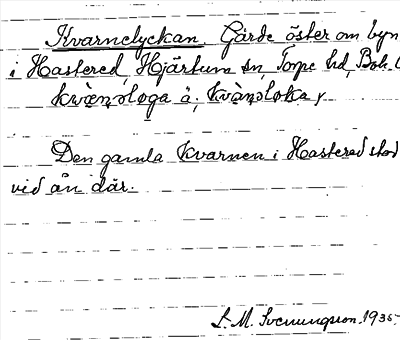 Kvarnelyckan. Gärde öster om byn
i Hastered, Hjärtum sn, Torpe hd, Boh. l
kvàṇəløga ä, kvàṇəløka y
Den gamla kvarnen i Hastered stod
vid ån där.
S. M. Svenungsson. 1935.